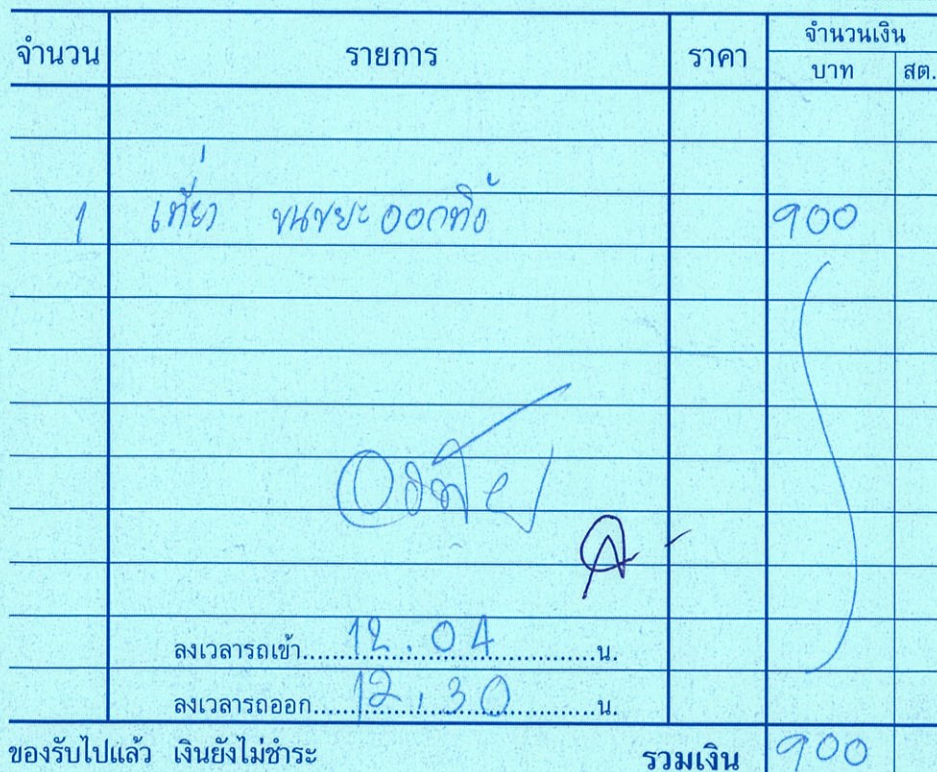 จำนวน รายการ ราคา จำนวนเงิน
บาท สต.
1 เที่ยว ขนขยะออกทิ้ง 900
ลงเวลารถเข้า 12.04 น.
ลงเวลารถออก 12.30 น.
ของรับไปแล้ว เงินยังไม่ชำระ รวมเงิน 900